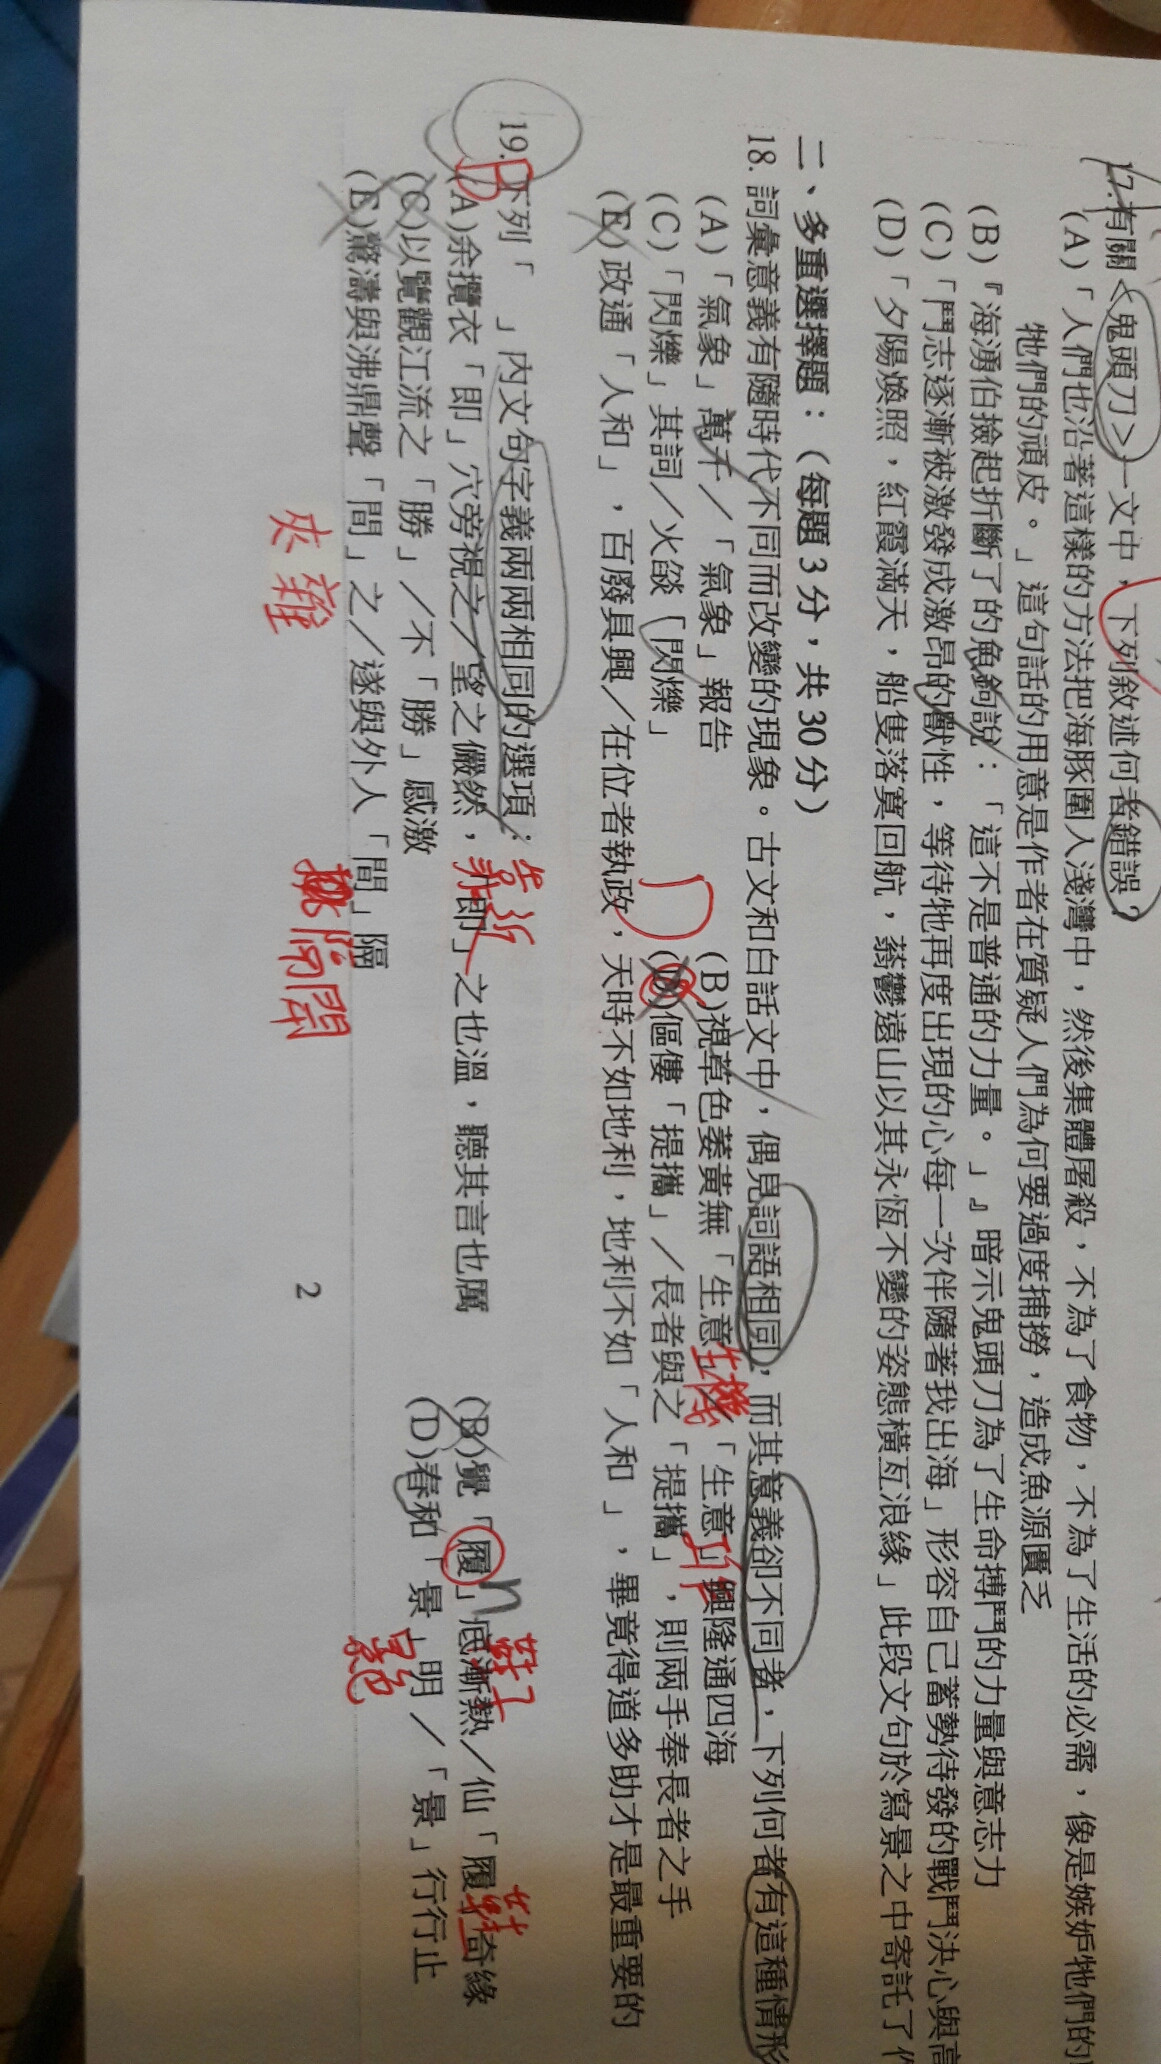 17.有關<鬼頭刀>一文中，下列敘述何者錯誤？
(A)「人們也沿著這樣的方法把海豚圍入淺灣中，然後集體屠殺，不為了食物，不為了生活的必需，像是嫉妒牠們的
牠們的頑皮。」這句話的用意是作者在質疑人們為何要過度捕撈，造成魚源匱乏
(B)『海湧伯撿起折斷了的魚鉤說：「這不是普通的力量。」』暗示鬼頭刀為了生命搏鬥的力量與意志力
(C)「鬥志逐漸被激發成激昂的獸性，等待牠再度出現的心每一次伴隨著我出海」形容自己蓄勢待發的戰鬥決心與高
(D)「夕陽煥照，紅霞滿天，船隻落寞回航，蓊鬱遠山以其永恆不變的姿態橫亙浪緣」此段文句於寫景之中寄託了作
二、多重選擇題：（每題3分，共30分）
18. 詞彙意義有隨時代不同而改變的現象。古文和白話文中，偶見詞語相同，而其意義卻不同者，下列何者有這種情形
(A)「氣象」萬千／「氣象」報告 (B)視草色萎黃無「生意」／「生意」興隆通四海
生機 工作
(C)「閃爍」其詞／火燄「閃爍」 (D)傴僂「提攜」／長者與之「提攜」，則兩手奉長者之手
(E) 政通「人和」，百廢具興／在位者執政，天時不如地利，地利不如「人和」，畢竟得道多助才是最重要的
19.下列「　」內文句字義兩兩相同的選項：
D
(A)余攬衣「即」穴旁視之／望之儼然，「即」之也溫，聽其言也厲 (B)覺「履」底漸熱／仙「履」奇緣
靠近 鞋子 鞋
(C)以覽觀江流之「勝」／不「勝」感激 (D)春和「景」明／「景」行行止
景色
(E)驚濤與沸鼎聲「間」之／遂與外人「間」隔
夾雜 隔開
2